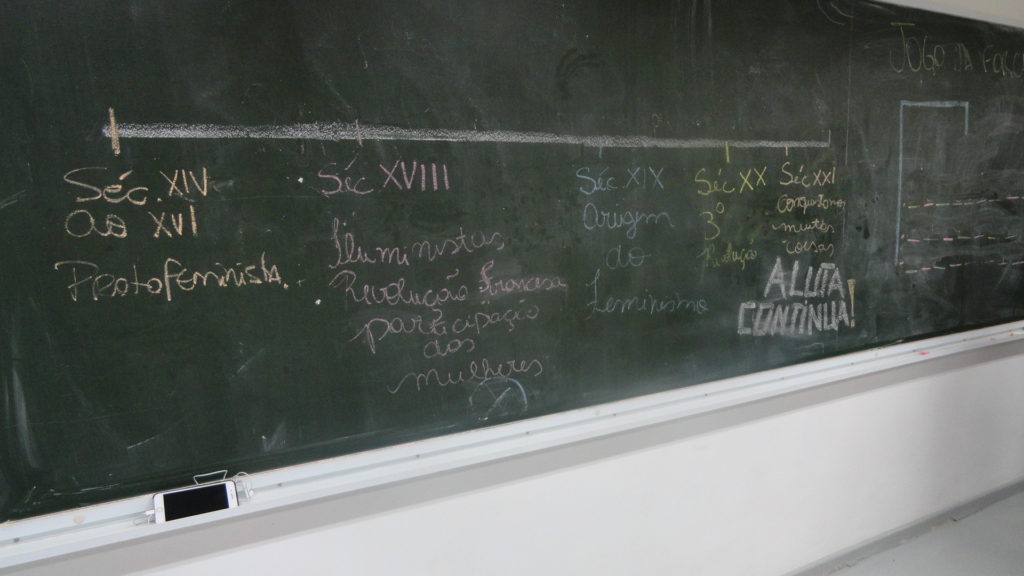 Séc. XIV
ao XVI
Protofeminista.
Séc XVIII
Iluministas
Revolução Francesa
participação
das
mulheres
Séc XIX
Origem
do
Feminismo
Séc XX
3º
Séc XXI
conquistamos
muitas
coisas
A LUTA
CONTINUA!
JOGO DA FORCA